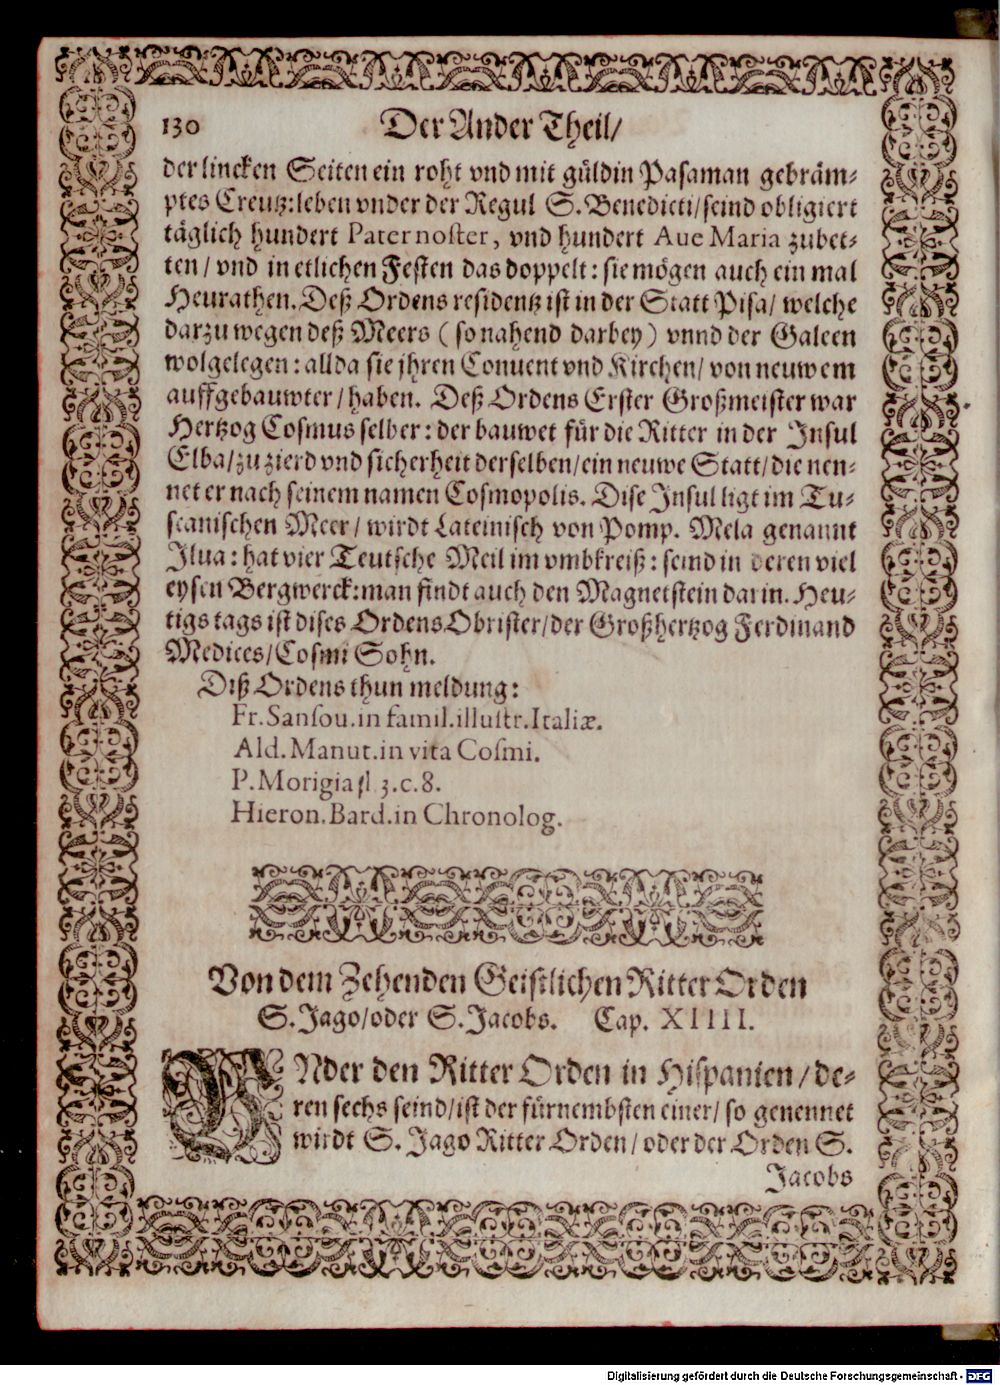 130 Der Ander Theil/
der lincken Seiten ein roht vnd mit güldin Pasaman gebräm-
ptes Creutz: leben vnder der Regul S. Benedicti/ seind obligiert
täglich hundert Pater noſter, vnd hundert Aue Maria zubet-
ten/ vnd in etlichen Festen das doppelt: sie mögen auch ein mal
Heurathen. Deß Ordens residentz ist in der Statt Pisa/ welche
darzu wegen deß Meers (so nahend darbey) vnnd der Galeen
wolgelegen: allda sie jhren Conuent vnd Kirchen/ von neuwem
auffgebauwter/ haben. Deß Ordens Erster Großmeister war
Hertzog Cosmus selber: der bauwet für die Ritter in der Insul
Elba/ zu zierd vnd sicherheit derselben/ ein neuwe Statt/ die nen-
net er nach seinem namen Cosmopolis. Dise Insul ligt im Tu-
scanischen Meer/ wirdt Lateinisch von Pomp. Mela genannt
Ilua: hat vier Teutsche Meil im vmbkreiß: seind in deren viel
eysen Bergwerck: man findt auch den Magnetstein darin. Heu-
tigs tags ist dises Ordens Obrister/ der Großhertzog Ferdinand
Medices/ Cosmi Sohn.
Diß Ordens thun meldung:
Fr. Sanſou. in famil. illuſtr. Italiæ.
Ald. Manut. in vita Coſmi.
P. Morigia l 3. c. 8.
Hieron. Bard. in Chronolog.
Von dem Zehenden Geistlichen Ritter Orden
S. Jago/ oder S. Jacobs. Cap. XIIII.
VNder den Ritter Orden in Hispanien/ de-
ren sechs seind/ ist der fürnembsten einer/ so genennet
wirdt S. Jago Ritter Orden/ oder der Orden S.
Jacobs
Digitalisierung gefördert durch die Deutsche Forschungsgemeinschaft - DFG